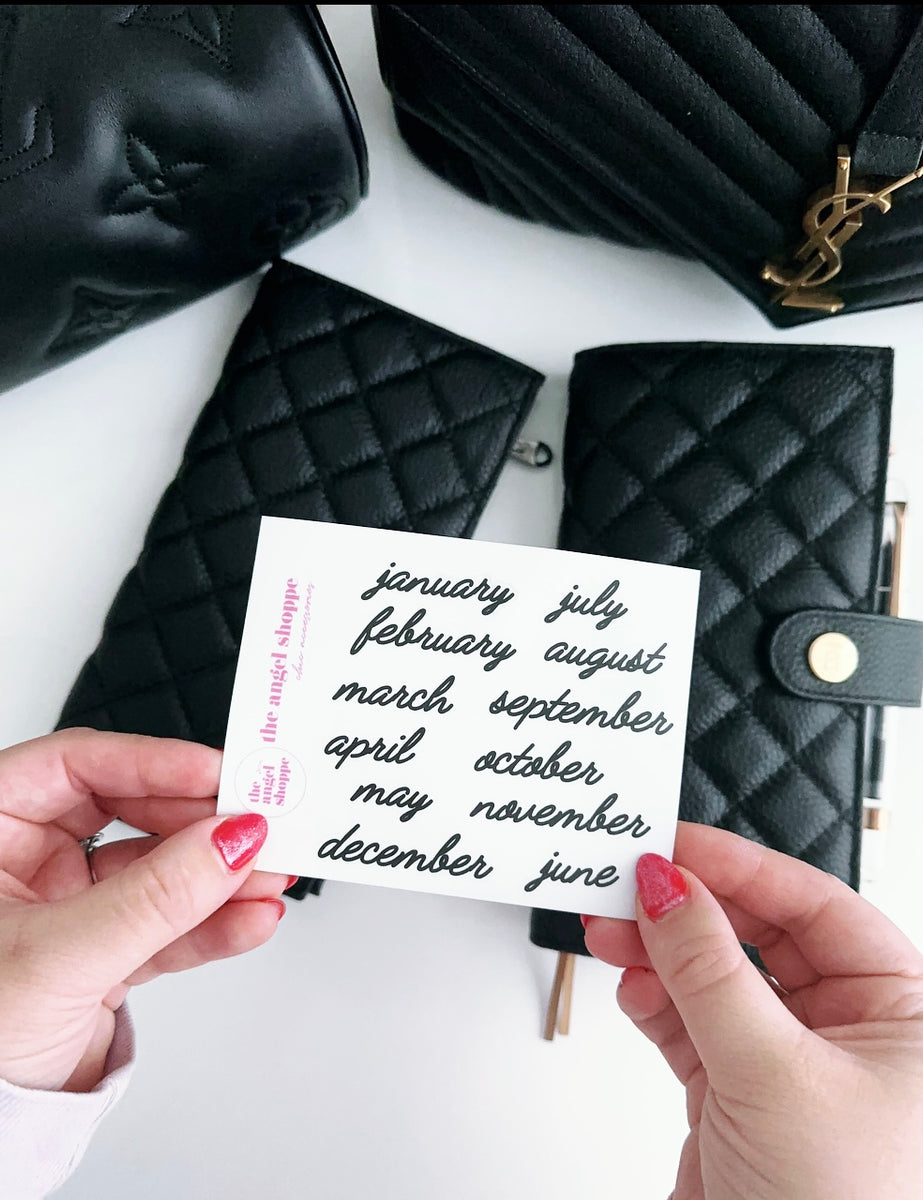 the angel shoppe
chic accessories
the
angel
shoppe
january july
february august
march september
april october
may november
december june
YSL